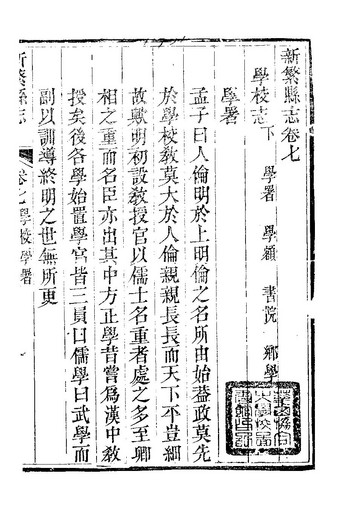 新繁縣志卷七
學校志下
學署 學額 書院 鄉學
學署
孟子曰人倫明於上明倫之名所由始葢政莫先
於學校敎莫大於人倫親親長長而天下平豈細
故歟明初設敎授官以儒士名重者處之多至卿
相之重而名臣亦出其中方正學昔嘗爲漢中敎
授矣後各學始置學官皆三員曰儒學曰武學而
副以訓導終明之世無所更
新繁縣志
卷七學校 學署